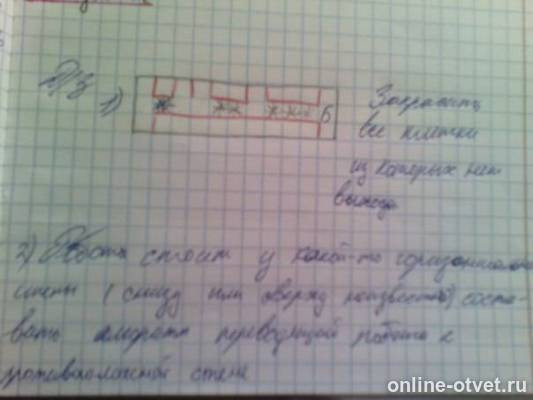 Д/З
1)
Б
Закрасить
все клетки
из которых нет
выхода
2) Робот стоит у какой-то горизонтальной
стены (снизу или сверху неизвестно) соста-
вить алгоритм переводящий робота к
противоположной стене
online-otvet.ru